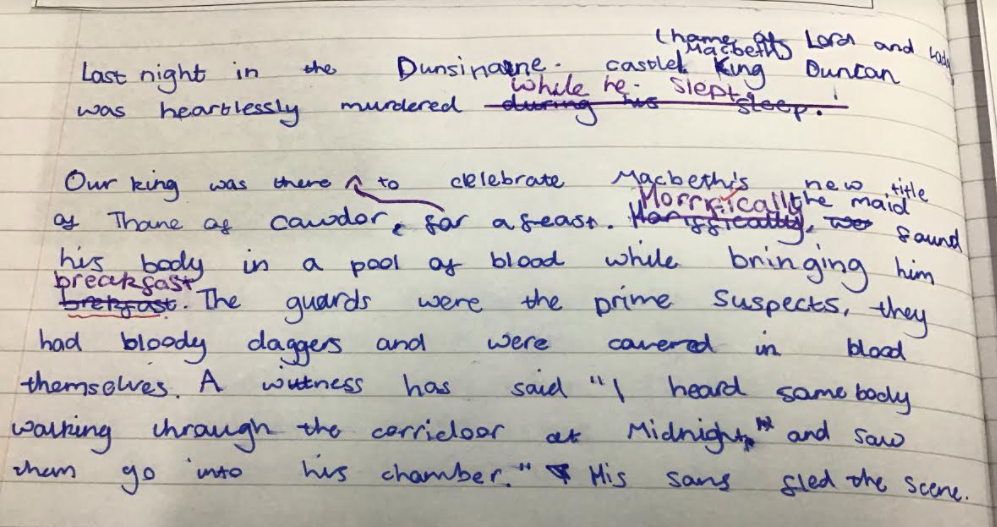 (home of Lord and Lady
Macbeth)
Last night in the Dunsinane. castle King Duncan
while he. slept.
was heartlessly murdered during his sleep.
Our king was there to celebrate Macbeth's new title
Horrifically the maid
of Thane of Cawdor, for a feast. Horriffically, was found
his body in a pool of blood while bringing him
breakfast
brekfast. The guards were the prime suspects, they
had bloody daggers and were covered in blood
themselves. A witness has said "I heard somebody
walking through the corridoor at Midnight, and saw
them go into his chamber." His sons fled the scene.